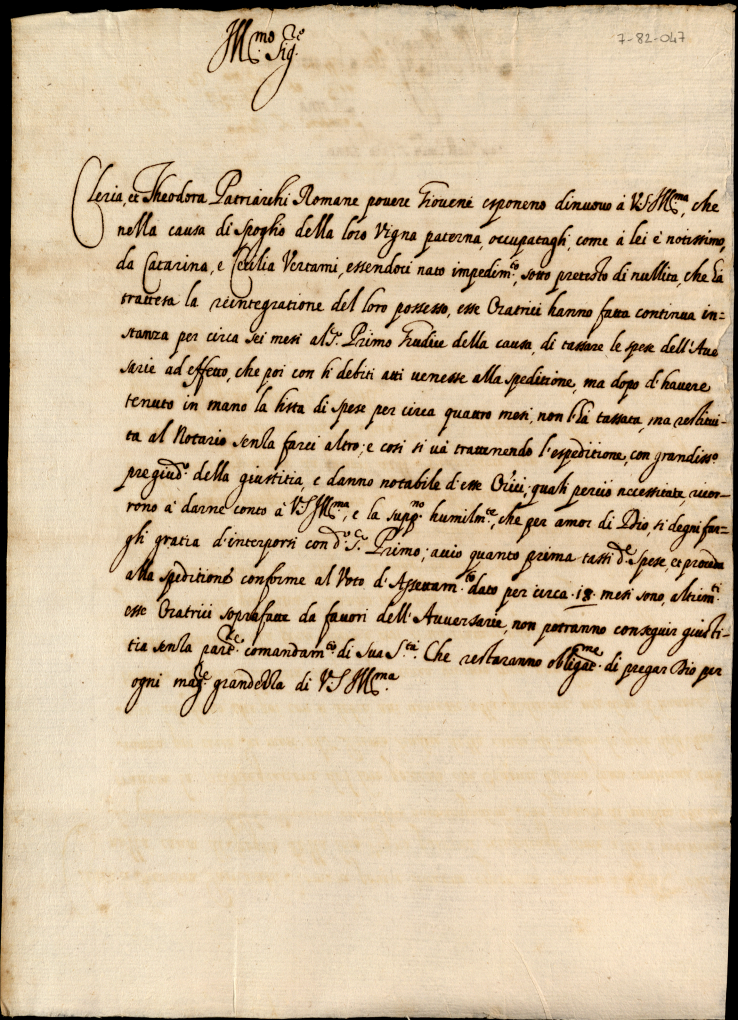 7-82-047
Ill.mo Sig.re
Cleria, et Theodora Patriarchi Romane povere Giovene esponeno dinuovo à V.S. Ill.ma, che
nella causa di spoglio della loro Vigna paterna, occupatagli, come à lei è notissimo,
da Catarina, e Cecilia Vertami, essendoci nato impedim.to, sotto pretesto di nullità, che hà
trattesa la reintegratione del loro possesso, esse Oratrici hanno fatta continua in=
stanza per circa sei mesi al S. Primo Giudice della causa, di tassare le spese dell'Ave
sarie ad effetto, che poi con li debiti atti venesse alla speditione, ma dopo d'havere
tenuto in mano la lista di spese per circa quattro mesi, non l'hà tassata, ma restitui-
ta al Notario senza farci altro; e cosi si và trattenendo l'espeditione, con grandiss.o
pregiud.o della giustitia, e danno notabile d'esse Or.ici; quali perciò necessitate ricor-
rono à darne conto à V.S. Ill.ma, e la supp.no humilm.te, che per amor di Dio, si degni far-
gli gratia d'interporsi con d.o S. Primo; acciò quanto prima tassi d.e spese, et proceda
alla speditione conforme al Voto d'Assettam.to dato per circa .18. mesi sono, altrim.ti
esse Oratrici soprafatte da favori dell'Avversarie, non potranno conseguir giusti-
tia senza par.re comandam.to di Sua S.tà. Che restaranno oblig.me di pregar Dio per
ogni mag.re grandezza di V.S. Ill.ma